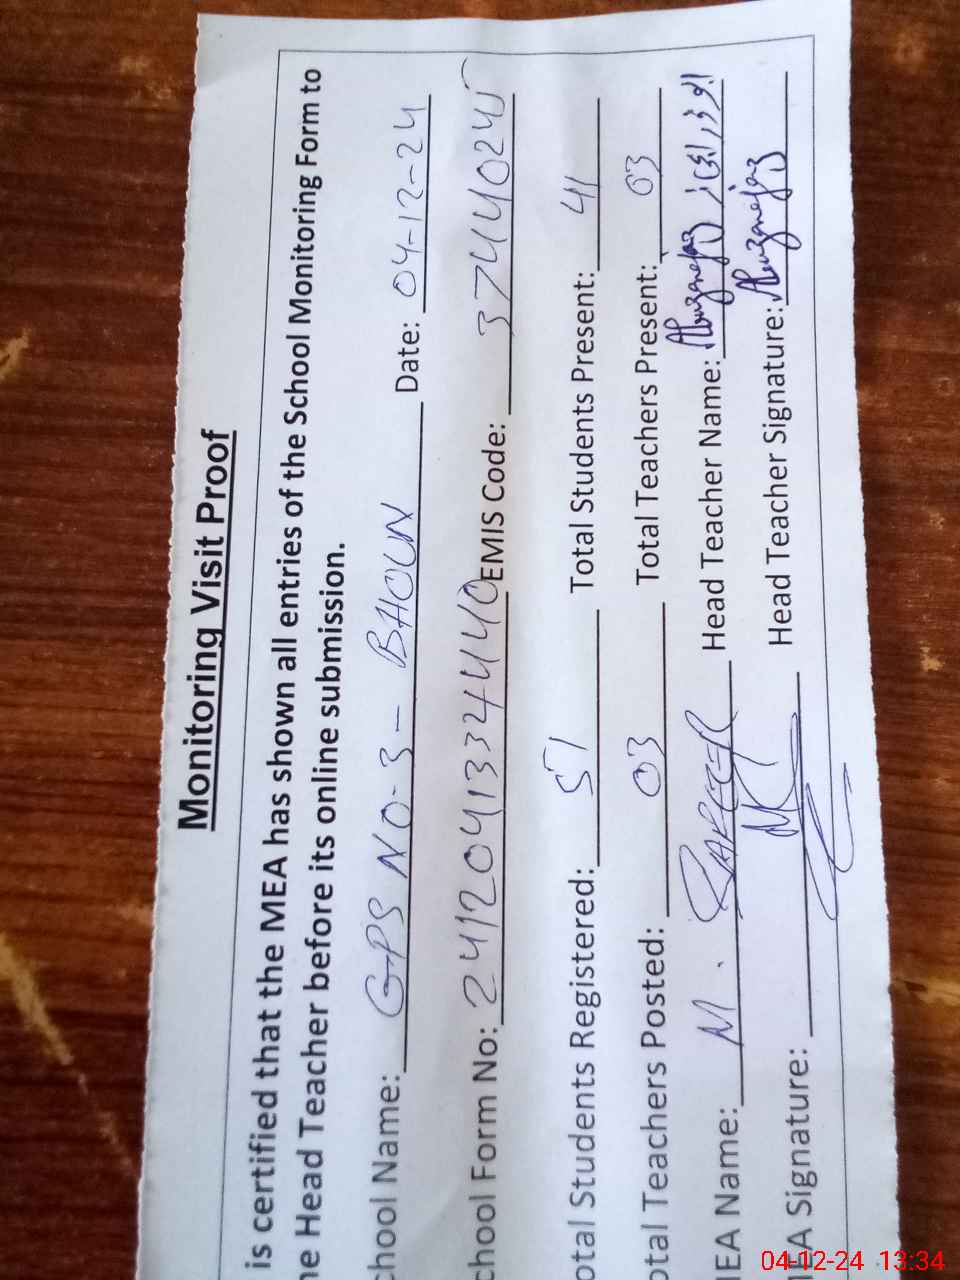 Monitoring Visit Proof
is certified that the MEA has shown all entries of the School Monitoring Form to
he Head Teacher before its online submission.
chool Name: GPS NO-3- BHOUN Date: 04-12-24
chool Form No: 2412041334440 EMIS Code:
otal Students Registered: 51 Total Students Present: 41
otal Teachers Posted: 03 Total Teachers Present: 03
MEA Name: M. Head Teacher Name:
MEA Signature: Head Teacher Signature:
04-12-24 13:34